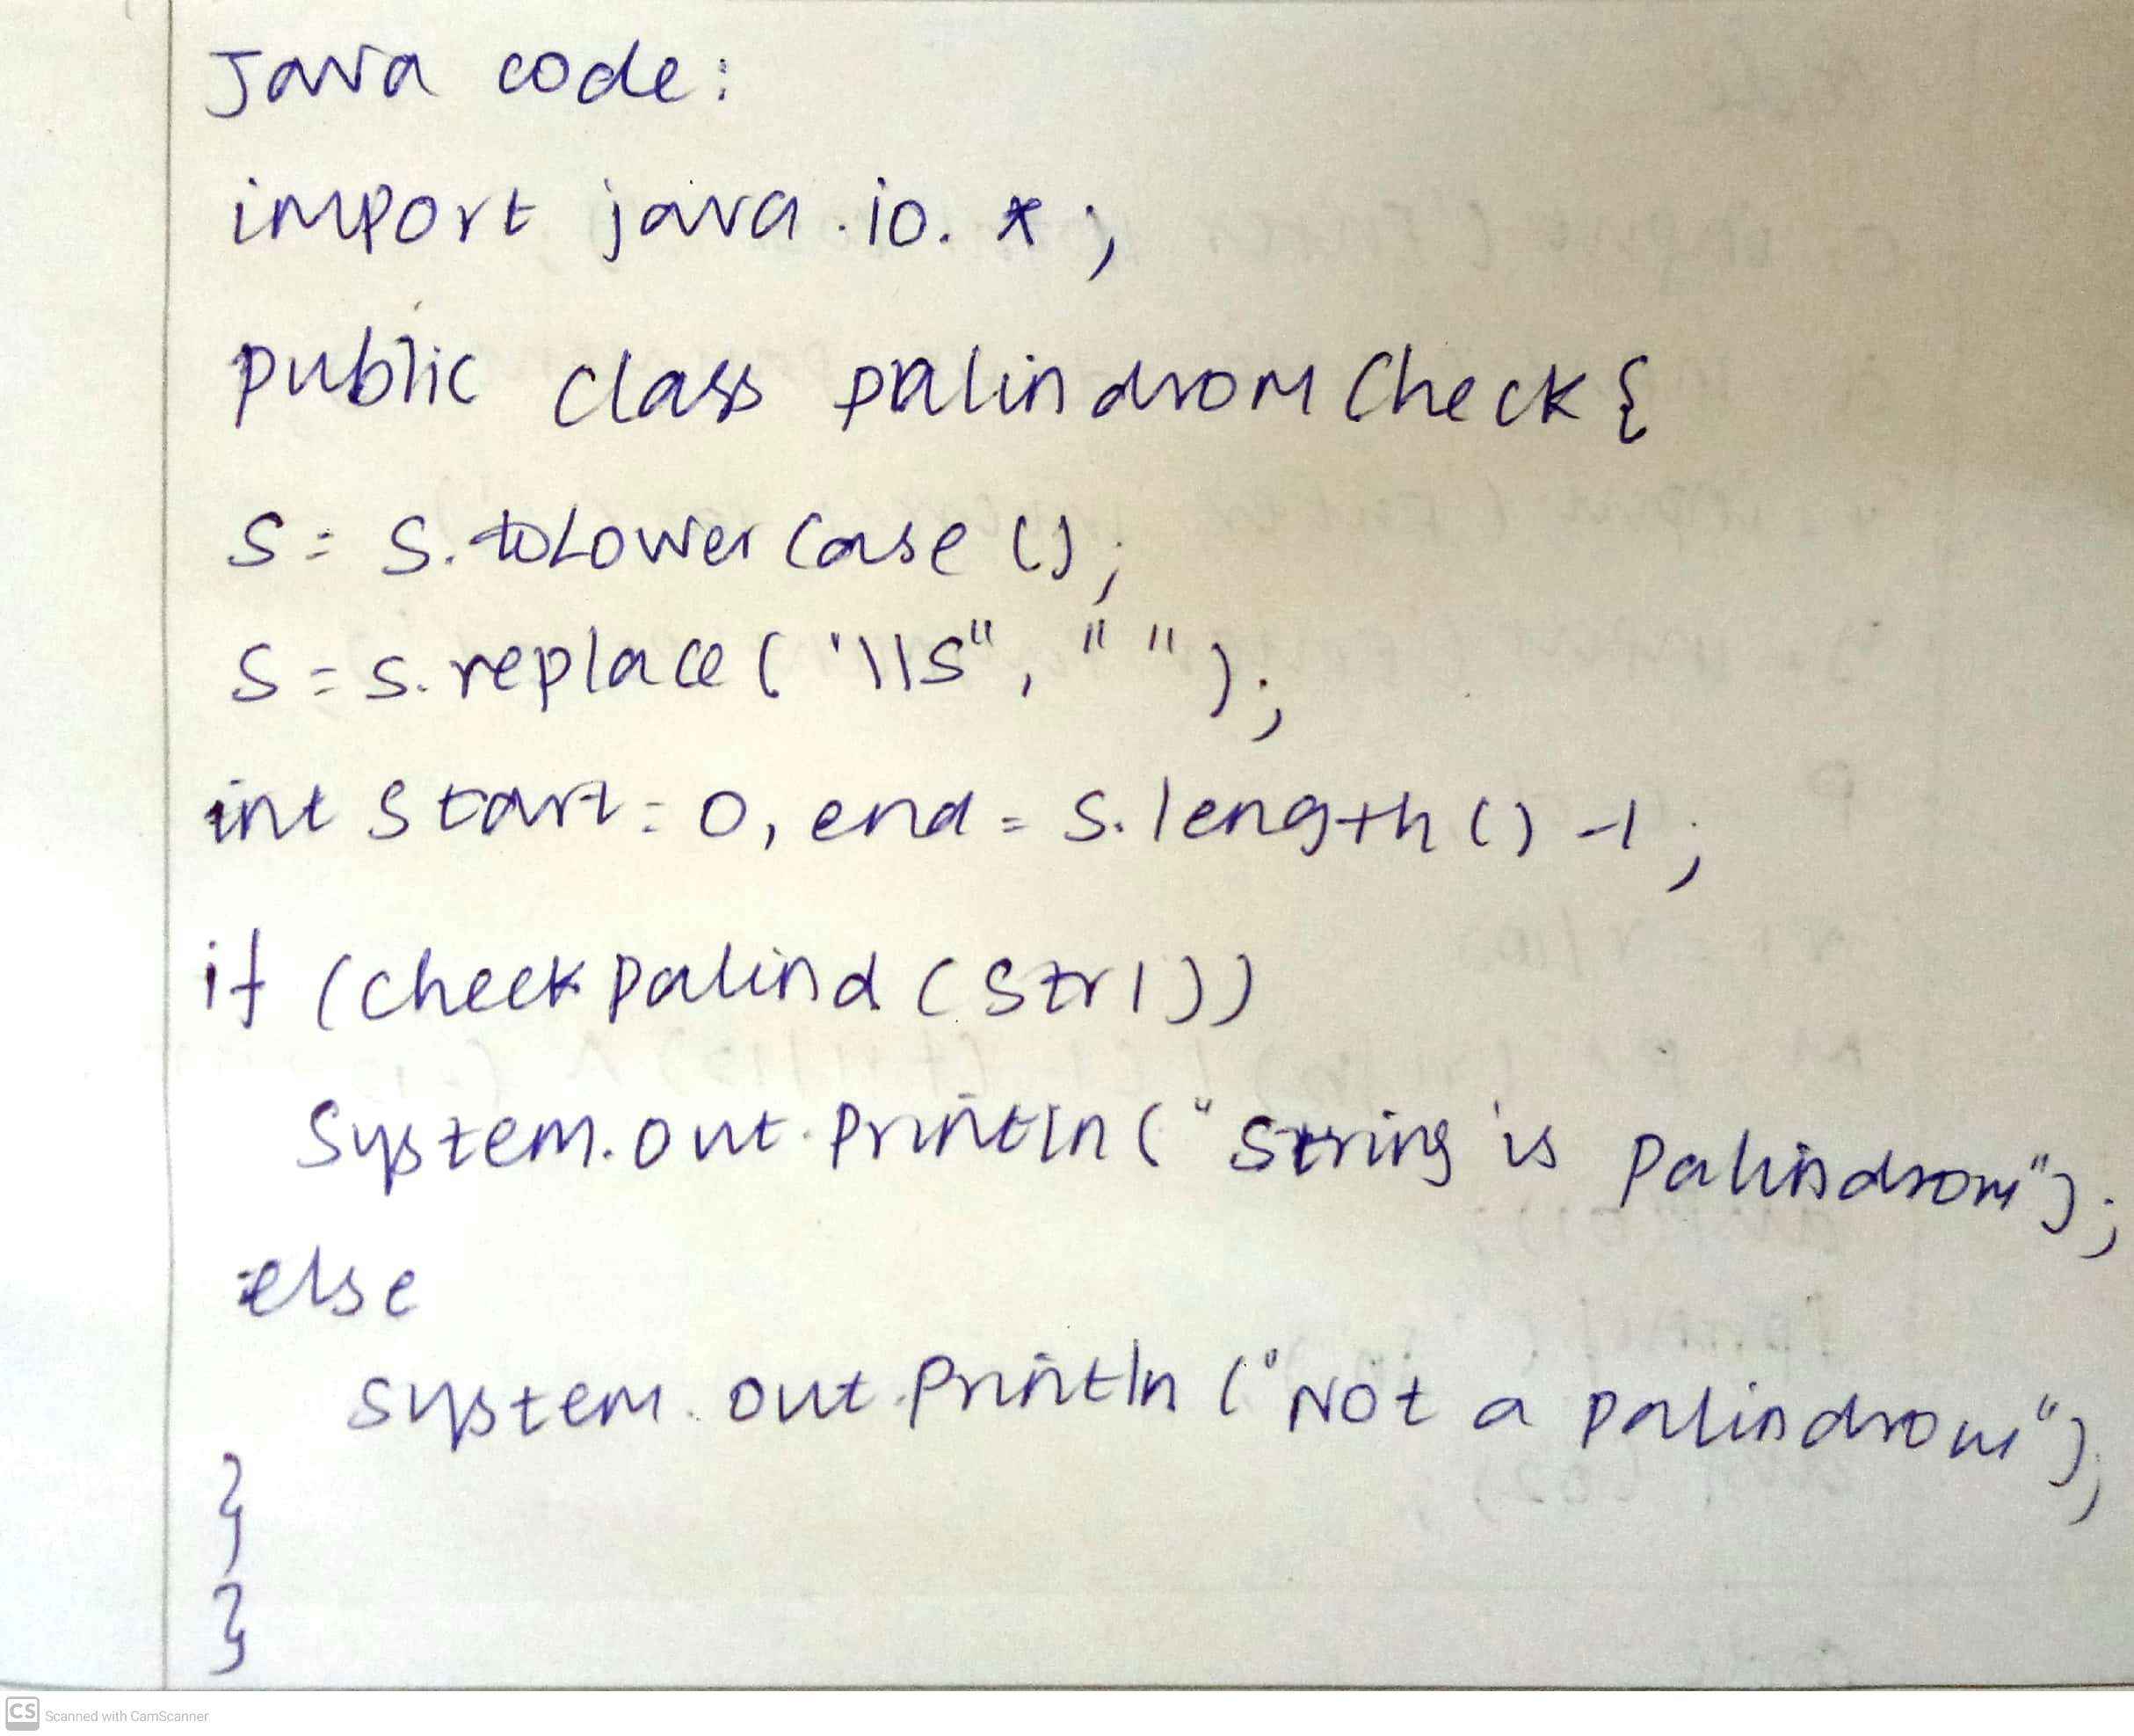 Java code:
import java.io.*;
public class palindromCheck{
s = s.toLowerCase();
s = s.replace('\\s", " ");
int start = 0, end = s.length() -1;
if (check palind (str1))
System.out.println("String is Palindrom");
else
system.out.println("Not a palindrom");
}
}
CS Scanned with CamScanner